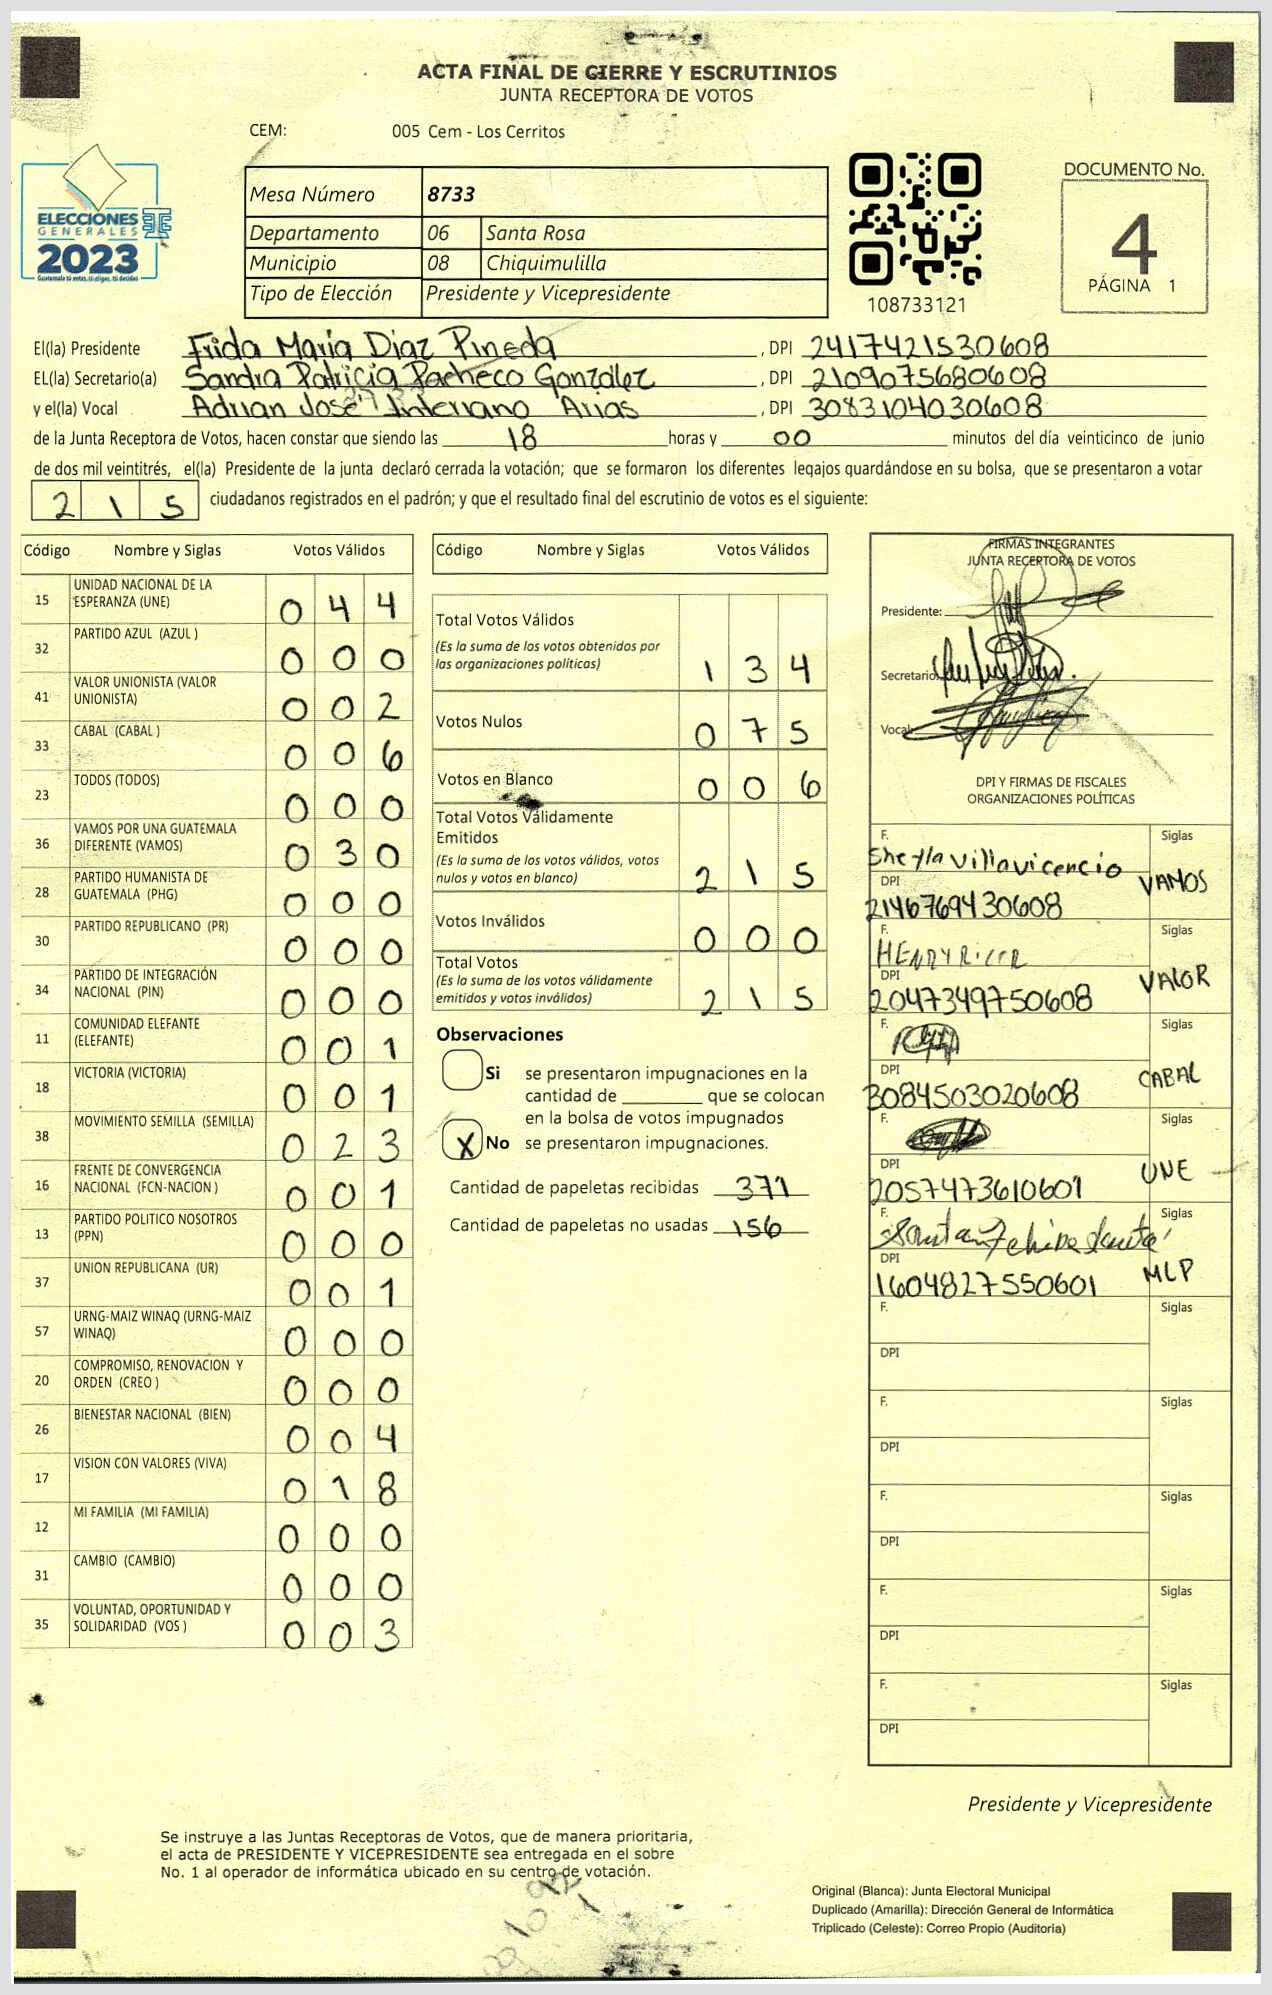 ACTA FINAL DE CIERRE Y ESCRUTINIOS
JUNTA RECEPTORA DE VOTOS
CEM: 005 Cem - Los Cerritos
ELECCIONES
GENERALES
2023
Guatemala tú votas, tú eliges, tú decides
Mesa Número 8733
Departamento 06 Santa Rosa
Municipio 08 Chiquimulilla
Tipo de Elección Presidente y Vicepresidente
108733121
DOCUMENTO No.
4
PÁGINA 1
El(la) Presidente Frida María Diaz Pineda, DPI 2417421530608
EL(la) Secretario(a) Sandra Patricia Pacheco González, DPI 2109075680608
y el(la) Vocal Adrian José Interiano Arias, DPI 3083104030608
de la Junta Receptora de Votos, hacen constar que siendo las 18 horas y 00 minutos del día veinticinco de junio
de dos mil veintitrés, el(la) Presidente de la junta declaró cerrada la votación; que se formaron los diferentes legajos guardándose en su bolsa, que se presentaron a votar
215 ciudadanos registrados en el padrón; y que el resultado final del escrutinio de votos es el siguiente:
Código Nombre y Siglas Votos Válidos
15 UNIDAD NACIONAL DE LA ESPERANZA (UNE) 044
32 PARTIDO AZUL (AZUL ) 000
41 VALOR UNIONISTA (VALOR UNIONISTA) 002
33 CABAL (CABAL ) 006
23 TODOS (TODOS) 000
36 VAMOS POR UNA GUATEMALA DIFERENTE (VAMOS) 030
28 PARTIDO HUMANISTA DE GUATEMALA (PHG) 000
30 PARTIDO REPUBLICANO (PR) 000
34 PARTIDO DE INTEGRACIÓN NACIONAL (PIN) 000
11 COMUNIDAD ELEFANTE (ELEFANTE) 001
18 VICTORIA (VICTORIA) 001
38 MOVIMIENTO SEMILLA (SEMILLA) 023
16 FRENTE DE CONVERGENCIA NACIONAL (FCN-NACION ) 001
13 PARTIDO POLITICO NOSOTROS (PPN) 000
37 UNION REPUBLICANA (UR) 001
57 URNG-MAIZ WINAQ (URNG-MAIZ WINAQ) 000
20 COMPROMISO, RENOVACION Y ORDEN (CREO ) 000
26 BIENESTAR NACIONAL (BIEN) 004
17 VISION CON VALORES (VIVA) 018
12 MI FAMILIA (MI FAMILIA) 000
31 CAMBIO (CAMBIO) 000
35 VOLUNTAD, OPORTUNIDAD Y SOLIDARIDAD (VOS ) 003
Código Nombre y Siglas Votos Válidos
Total Votos Válidos
(Es la suma de los votos obtenidos por las organizaciones políticas) 134
Votos Nulos 075
Votos en Blanco 006
Total Votos Válidamente Emitidos
(Es la suma de los votos válidos, votos nulos y votos en blanco) 215
Votos Inválidos 000
Total Votos
(Es la suma de los votos válidamente emitidos y votos inválidos) 215
Observaciones
Si se presentaron impugnaciones en la
cantidad de ________ que se colocan
en la bolsa de votos impugnados
X No se presentaron impugnaciones.
Cantidad de papeletas recibidas 371
Cantidad de papeletas no usadas 156
FIRMAS INTEGRANTES
JUNTA RECEPTORA DE VOTOS
Presidente:
Secretario:
Vocal:
DPI Y FIRMAS DE FISCALES
ORGANIZACIONES POLÍTICAS
F. Sheyla Villavicencio Siglas
DPI 2146769430608 VAMOS
F. HENRY Siglas
DPI 2047349750608 VALOR
F. Siglas
DPI 3084503020608 CABAL
F. Siglas
DPI 2057473610601 UNE
F. Siglas
DPI 1604827550601 MLP
F. Siglas
DPI
F. Siglas
DPI
F. Siglas
DPI
F. Siglas
DPI
F. Siglas
DPI
Presidente y Vicepresidente
Se instruye a las Juntas Receptoras de Votos, que de manera prioritaria,
el acta de PRESIDENTE Y VICEPRESIDENTE sea entregada en el sobre
No. 1 al operador de informática ubicado en su centro de votación.
Original (Blanca): Junta Electoral Municipal
Duplicado (Amarilla): Dirección General de Informática
Triplicado (Celeste): Correo Propio (Auditoría)